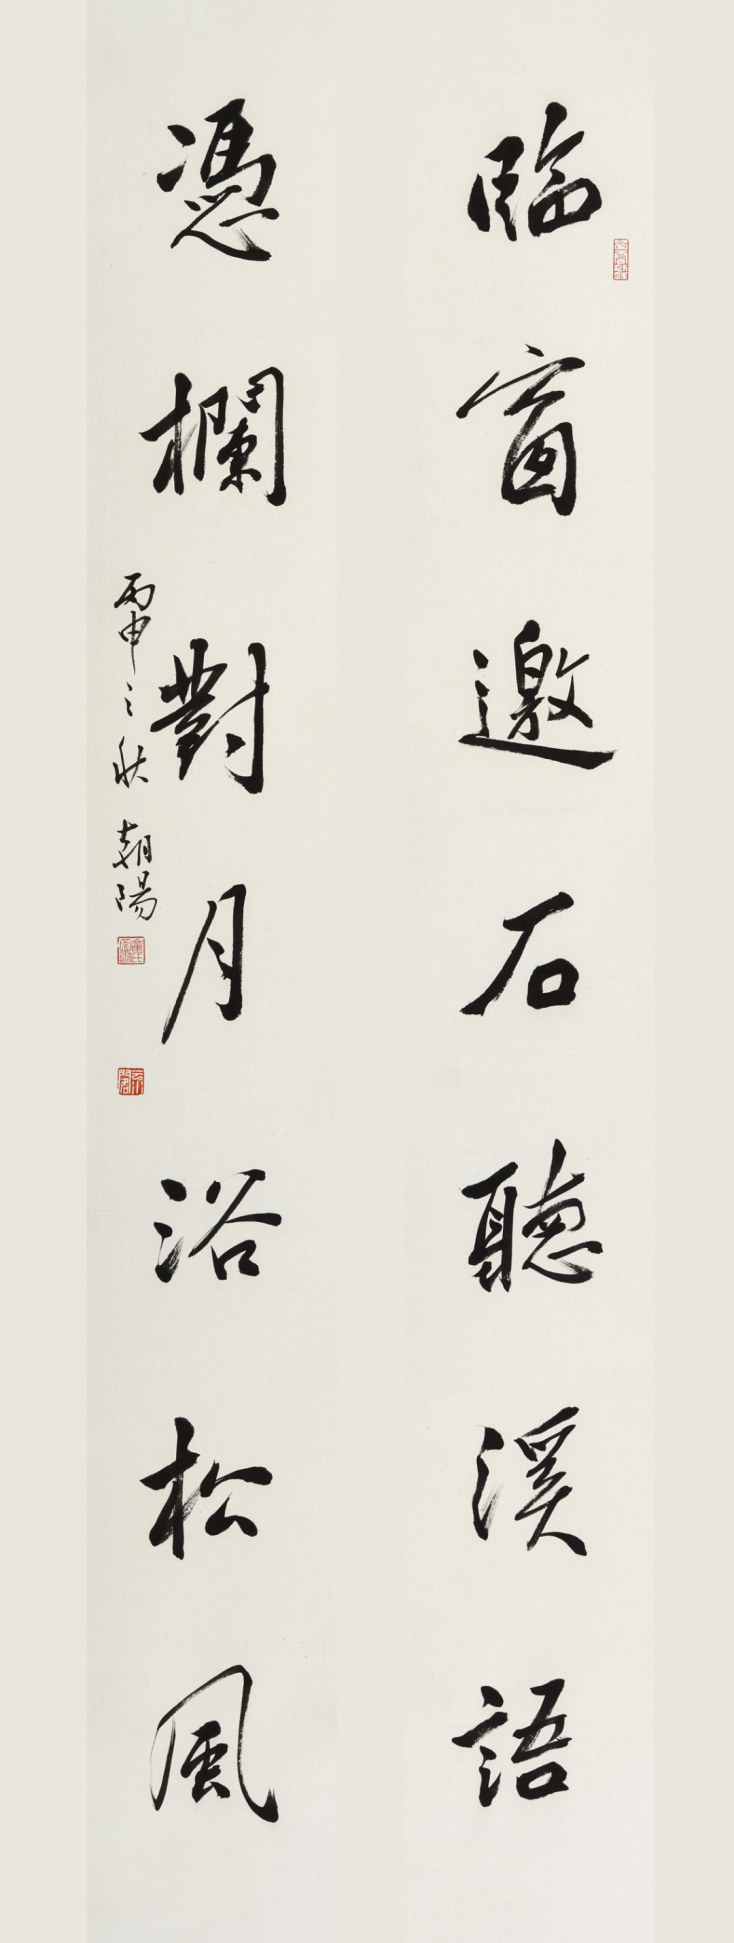 臨窗邀石聽溪語
憑欄對月浴松風
丙申之秋 朝陽